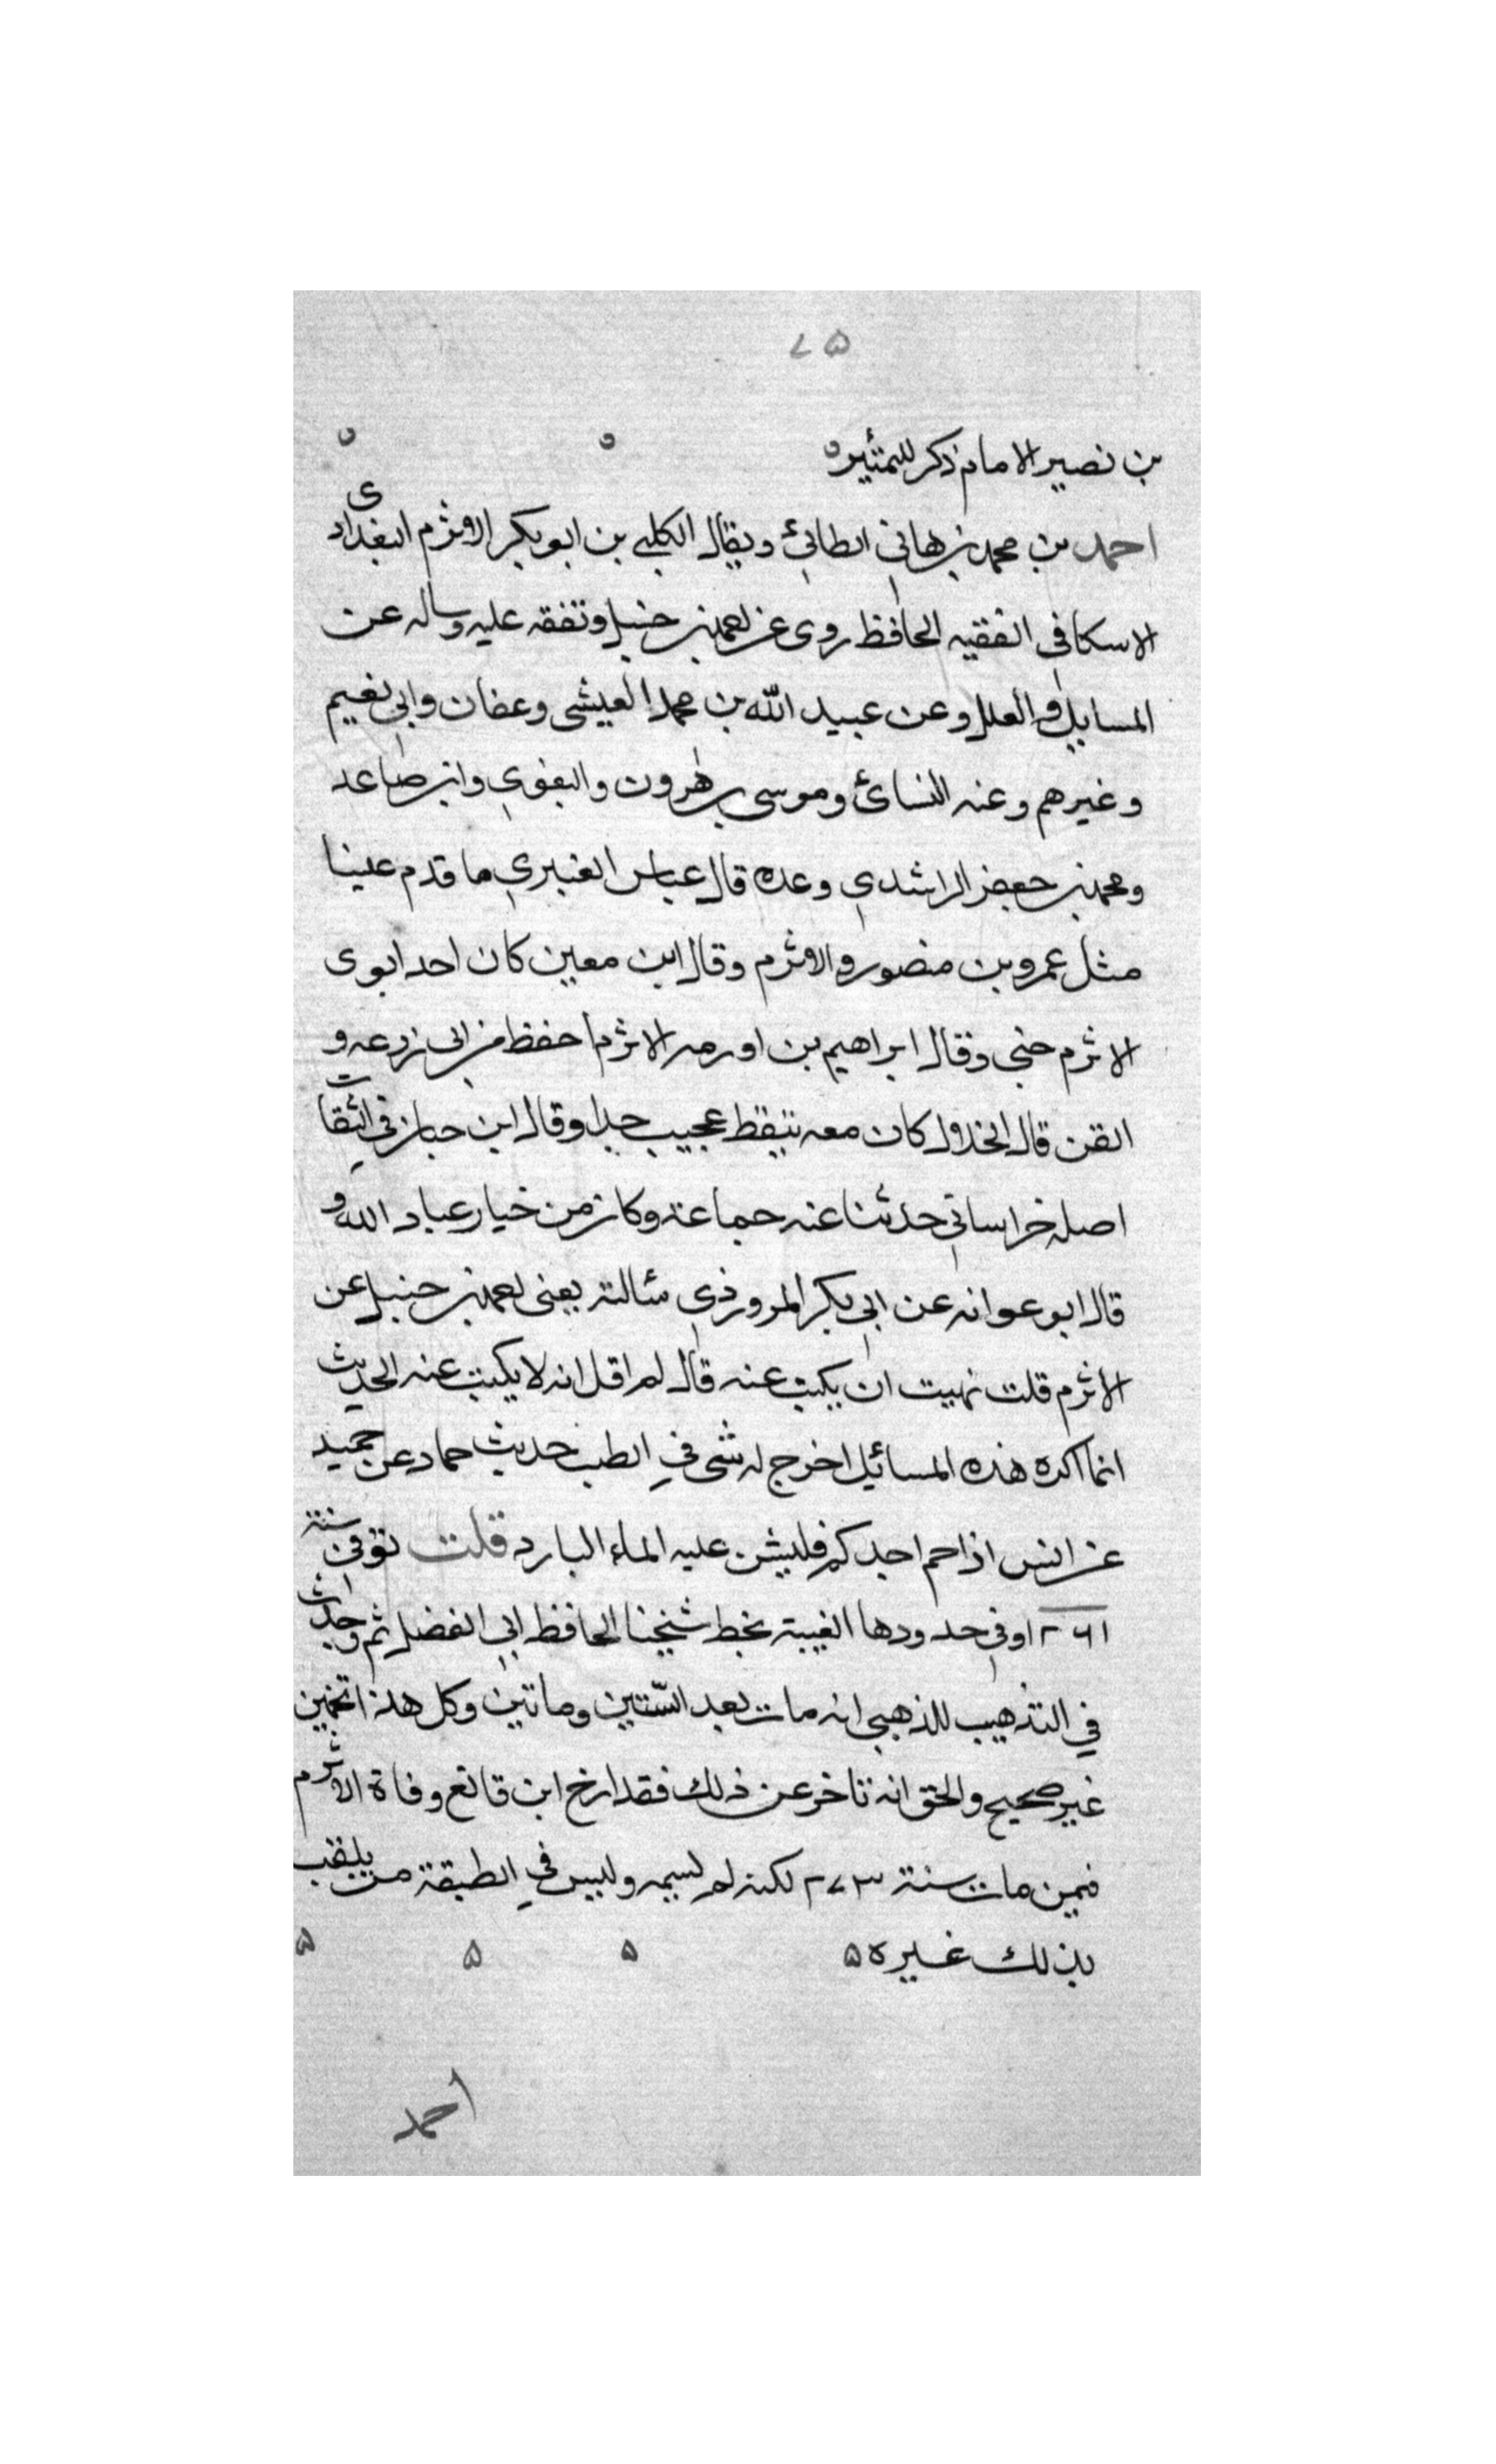 ٧٥
بن نصير الامام ذكر للتمييز
احمد بن محمد بن هاني الطائي ويقال الكلبي بن ابو بكر الاثرم البغدادى
الاسكافي الفقيه الحافظ روى عن احمد بن حنبل وتفقه عليه وساله عن
المسايل والعلل وعن عبيد الله بن محمد العيشى وعفان وابي نعيم
وغيرهم وعنه النسائ وموسى بن هرون والبغوي وابن صاعد
ومحمد بن جعفر الراشدي وعده قال عباس العنبري ما قدم علينا
مثل عمرو بن منصور والاثرم وقال ابن معين كان احد ابوى
الاثرم جني وقال ابراهيم بن اورمه الاثرم احفظ من ابى زرعه و
اتقن قال الخلال كان معه تيقظ عجيب جدا وقال ابن حبان في الثقات
اصله خراساني حدثنا عنه جماعة وكان من خيار عباد الله و
قال ابو عوانه عن ابي بكر المروذي سئالته يعنى احمد بن حنبل عن
الاثرم قلت نهيت ان يكتب عنه قال لم اقل انه لا يكتب عنه الحديث
انما اكره هذه المسائيل اخرج له شى في الطب حديث حماد عن حميد
عن انس اذا حم احدكم فليشن عليه الماء البارد قلت توفي سنة
٢٦١ او في حدودها الفيته بخط شيخنا الحافظ ابي الفضل ثم وجدت
في التذهيب للذهبي انه مات بعد الستين وماتين وكل هذا تخمين
غير صحيح والحق انه تاخر عن ذلك فقد ارخ ابن قانع وفاة الاثرم
فيمن مات سنة ٢٧٣ لكنه لم يسمه وليس في الطبقة من يلقب
بذلك غيره
احمد